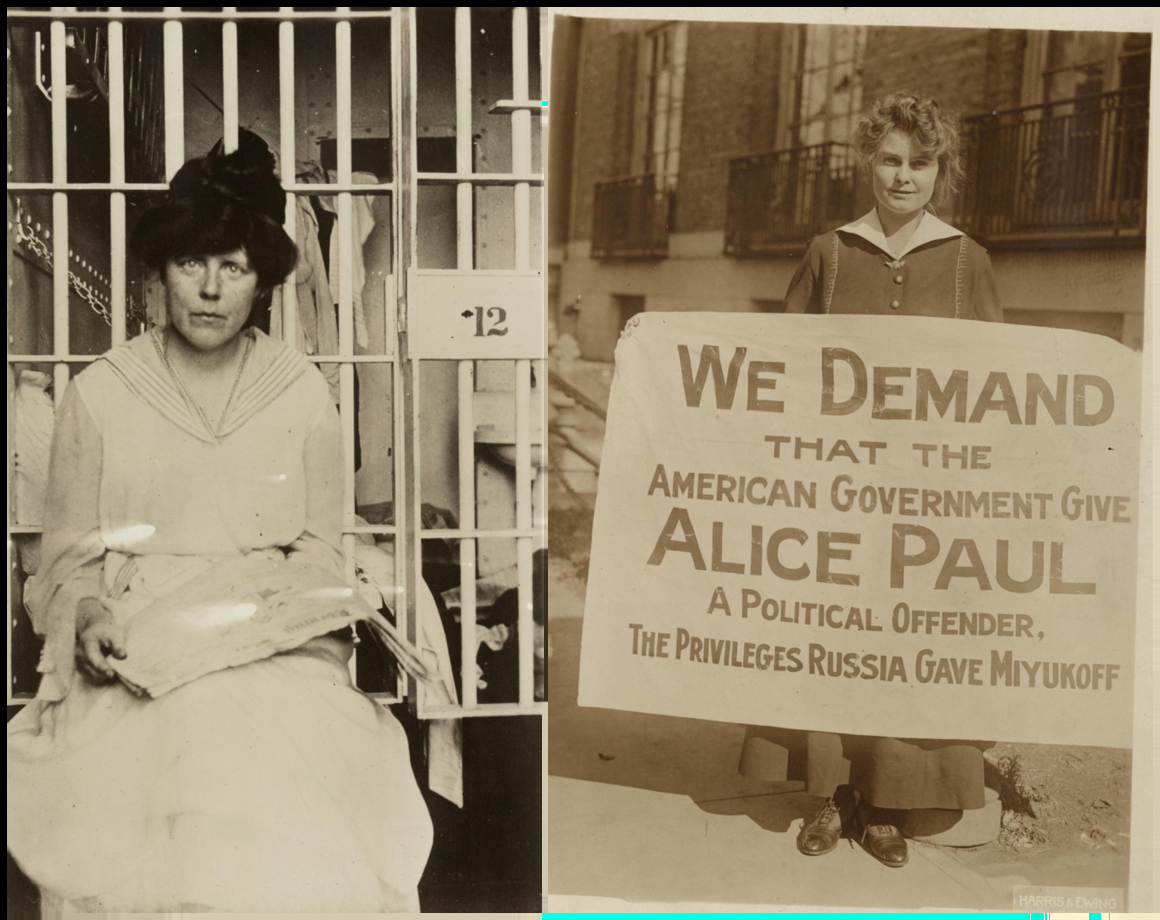 12
WE DEMAND
THAT THE
AMERICAN GOVERNMENT GIVE
ALICE PAUL
A POLITICAL OFFENDER,
THE PRIVILEGES RUSSIA GAVE MIYUKOFF
HARRIS & EWING